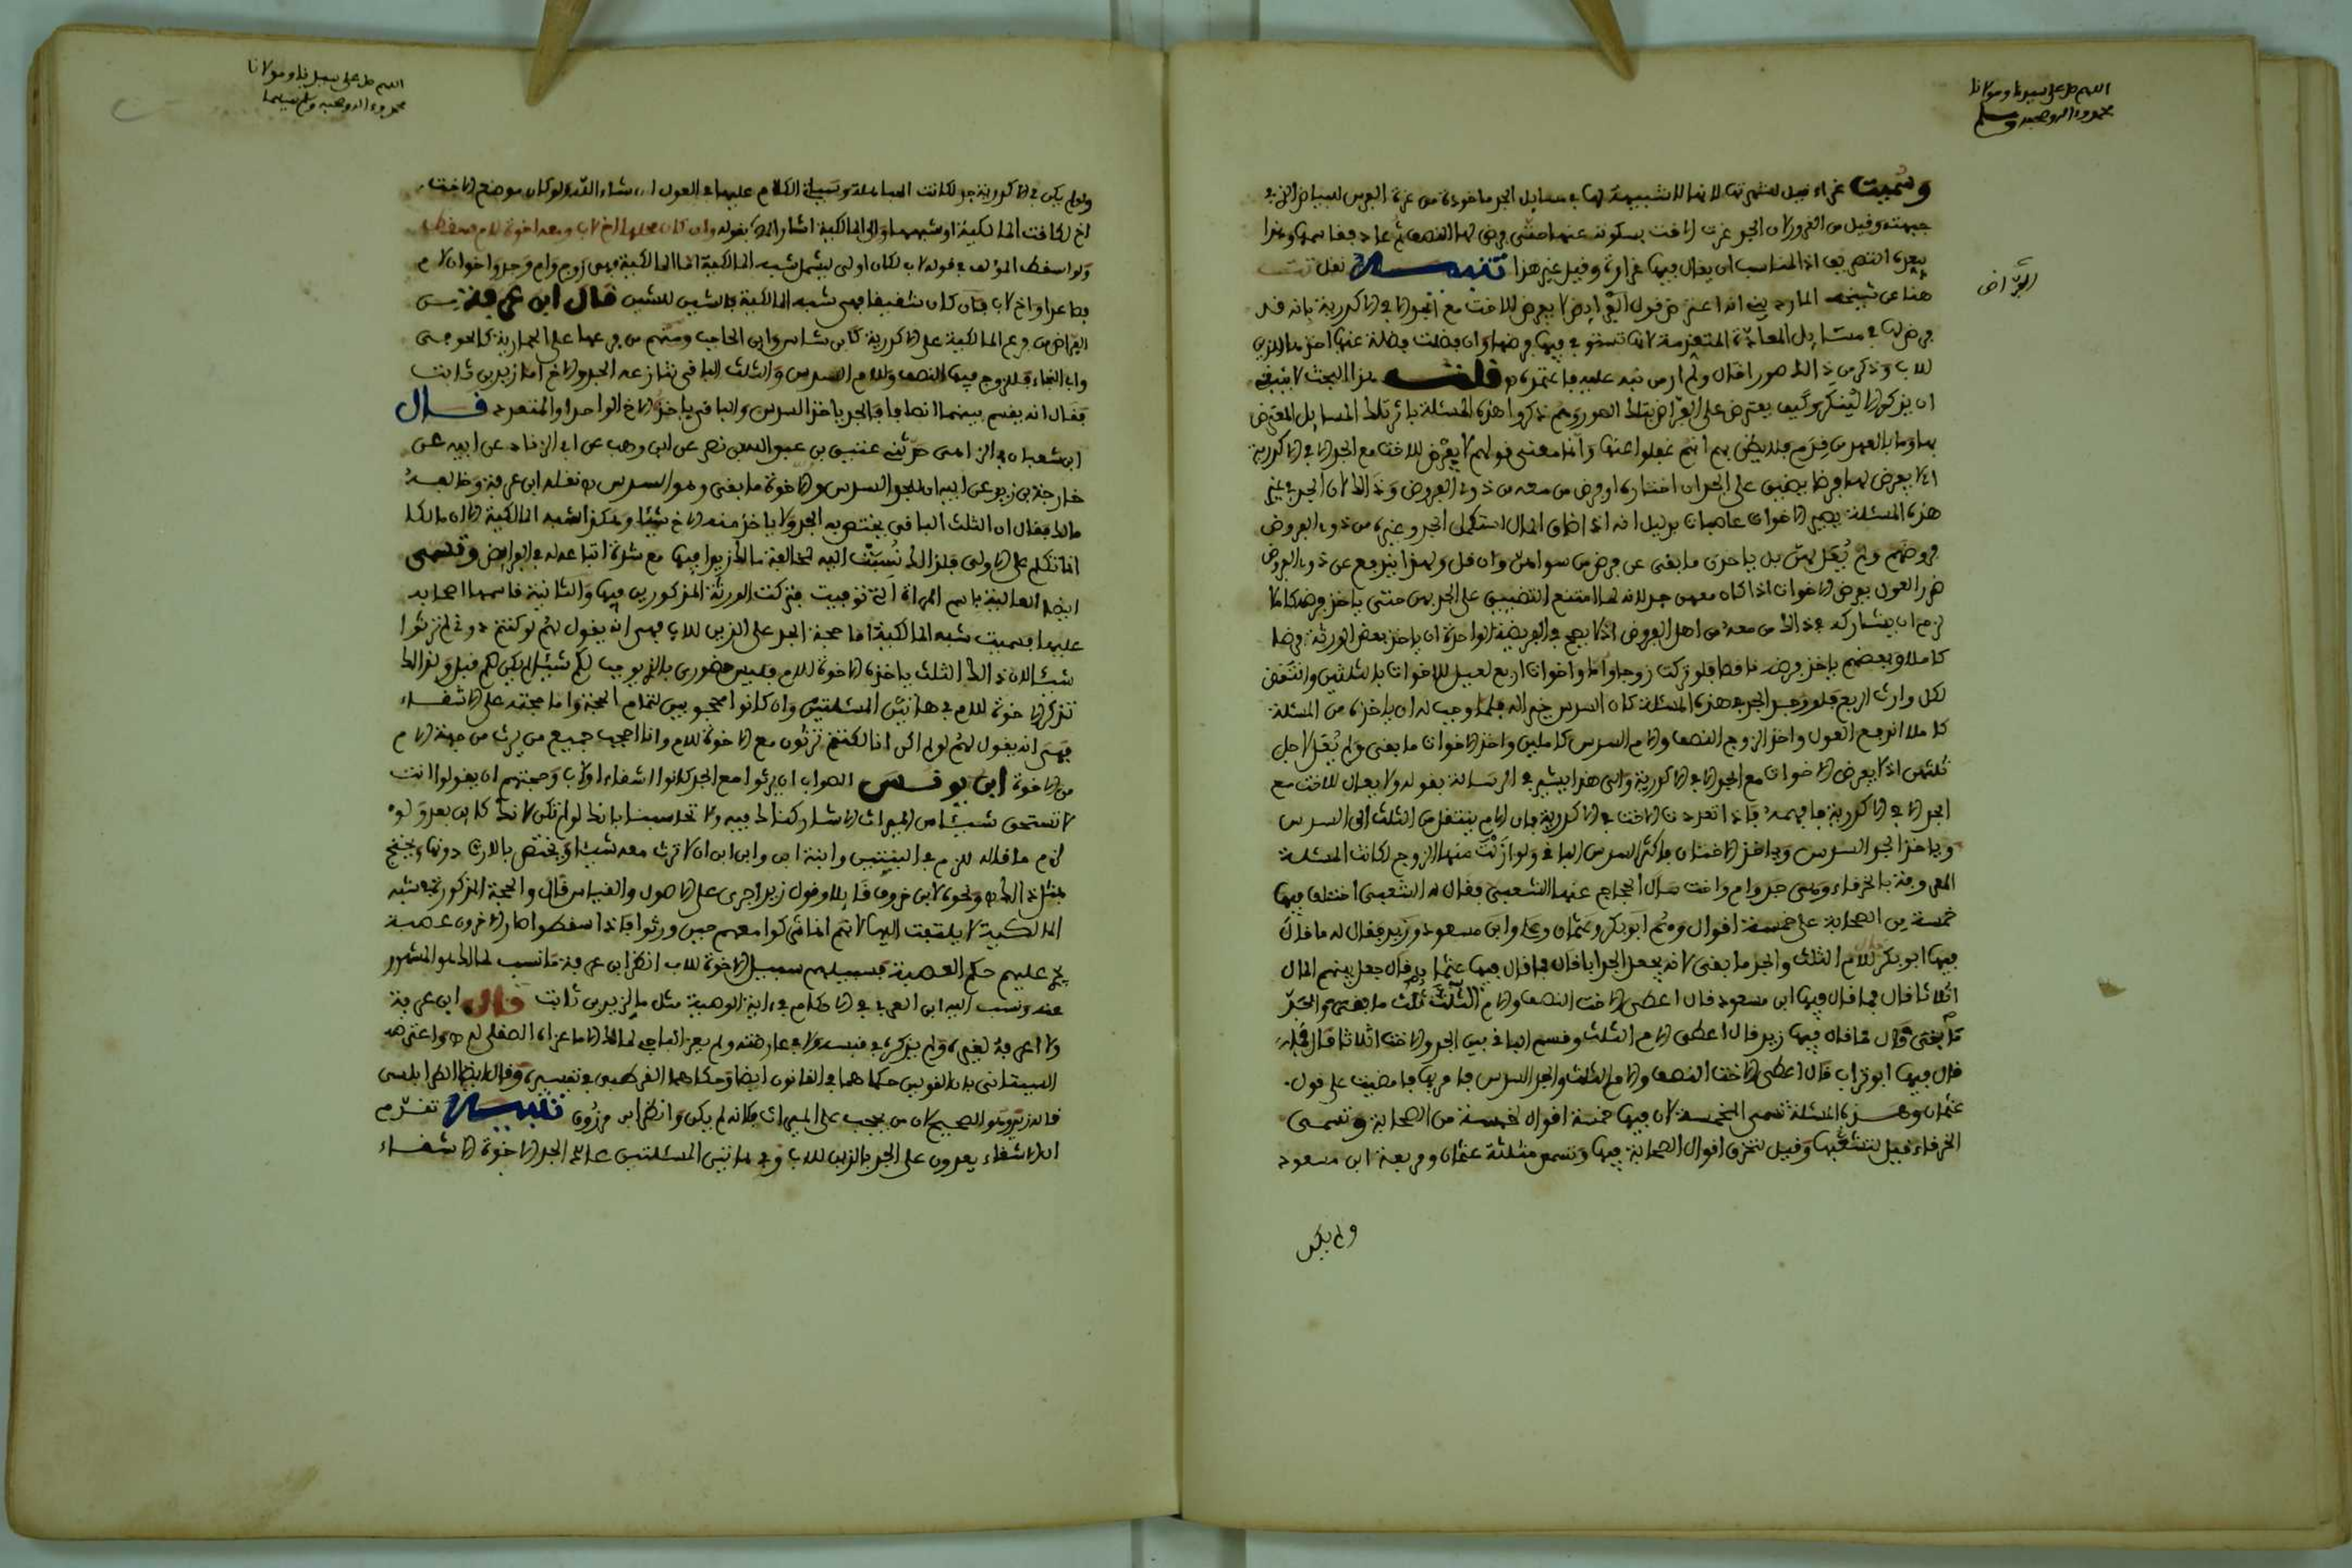 اللهم صل على سيدنا ومولانا
محمد وءاله وصحبه وسلم
وسميت غراء قيل لشهرتها لانها لا شبيهة لها في مسايل الجد ماخوذة من غرة الفرس للبياض الذي في
جبهته وقيل من الغرور لان الجد غرت الاخت بسكوته عنها حتى فرض لها النصف ثم عاد فقاسمها وهذا
اذ المناسب ان يقال فيها غرارة وقيل غير هذا تنبيه نقل
هنا عن شيخه انه اعترض قول الفراض لا يفرض للاخت مع الجد الا في الاكدرية بانه قد
الفراض
يفرض لها في مسايل المعادة المتقدمة لانها تستوفي فيها فرضها وان فضلت فضلة عنها اخذها الذين
للاب وذكر من ذالك صورا قال ولم ار من نبه عليه فاعتمده قلت هذا البحث لا ينبغي
ان يذكر الا لينكر وكيف يعترض على الفراض بتلك الصور وهم ذكروا هذه المسئلة باثر تلك المسايل المعترض
بها وما بالعهد من قدم فلا يظن بهم انهم غفلوا عنها وانما معنى قولهم لا يفرض للاخت مع الجد الا في الاكدرية
لا يفرض لها فرضا يضيق على الجد ان اختاره او فرض من معه من ذوي الفروض وذالك لان الجد في غير
هذه المسئلة يصير الاخوات عاصبات بدليل انه اذا ضاق المال استكمل الجد وغيره من ذوي الفروض
فروضهم ولم يعل لهن بل ياخذن ما بقي عن فرض من سواهن وان قل ولهذا يندفع عن ذوي الفروض
ضرر العول بفرض الاخوات اذا كان معهن جد لانه لما امتنع التضييق على الجد بهن حتى ياخذ فرضه كاملا
لزم ان يشاركه في ذالك من معه من اهل الفروض اذ لا يصح في الفريضة الواحدة ان ياخذ بعض الورثة فرضا
كاملا وبعضهم ياخذ فرضه ناقصا فلو تركت زوجا واما واخوات اربع لعيل للاخوات بالثلثين وانتقص
لكل وارث الربع فلو وجد الجد في هذه المسئلة كان السدس خيرا له فلما وجب له ان ياخذه من المسئلة
كاملا ارتفع العول واخذ الزوج النصف والام السدس كاملين واخذ الاخوات ما بقي ولم يعل لاجل
ثلثهن اذ لا يفرض للاخوات مع الجد الا في الاكدرية والى هذا يشير في الرسالة بقوله ولا يعال للاخت مع
الجد الا في الاكدرية فافهمه فاذا تعددت الاخت في الاكدرية فان الام تنتقل من الثلث الى السدس
وياخذ الجد السدس وياخذ الاختان فاكثر السدس الباقي ولو ازلت منها الزوج لكانت المسئلة
المعروفة بالخرقاء وهي جد وام واخت سال الحجاج عنها الشعبي فقال له الشعبي اختلف فيها
خمسة من الصحابة على خمسة اقوال وهم ابو بكر وعثمان وعلي وابن مسعود وزيد فقال له ما قال
فيها ابو بكر قال للام الثلث والجد ما بقي لانه يجعل الجد ابا قال فما قال فيها عثمان قال جعل بينهم المال
اثلاثا قال فما قال فيها ابن مسعود قال اعطى الاخت النصف والام ثلث ما بقي والجد
ما بقي قال فما قال فيها زيد قال اعطى الام الثلث وقسم الباقي بين الجد والاخت اثلاثا قال فما
قال فيها ابو تراب قال اعطى الاخت النصف والام الثلث والجد السدس فامر بها فامضيت على قول
عثمان وهذه المسئلة تسمى المخمسة لان فيها خمسة اقوال لخمسة من الصحابة وتسمى
الخرقاء قيل لتشعبها وقيل لتخرق اقوال الصحابة فيها وتسمى مثلثة عثمان ومربعة ابن مسعود
ولم يكن
اللهم صل على سيدنا ومولانا
محمد وءاله وصحبه وسلم تسليما
ولو لم يكن في الاكدرية جد لكانت المباهلة وسياتي الكلام عليها في العول ان شاء الله ولو كان موضع الاخت
اخ لكانت المالكية او شبهها والى المالكية اشار بقوله وان كان محلها اخ لاب ومعه اخوة لام سقط
ولو اسقط المؤلف قوله لاب لكان اولى ليشمل شبه المالكية اما المالكية فهي زوج وام وجد واخوان لام
فصاعدا واخ لاب فان كان شقيقا فهي شبه المالكية قال ابن عرفة
الفراض من فرع المالكية على الاكدرية كابن شاس وابن الحاجب ومنهم من فرعها على الحمارية كالحوفي
وابي النجاء فللزوج فيها النصف وللام السدس والثلث الباقي تنازعه الجد والاخ اما زيد بن ثابت
فقال انه يقسم بينهما انصافا فالجد ياخذ السدس والباقي ياخذه الاخ الواحد او المتعدد قال
ابن شعبان في الزاهي حدثني عتيق بن عبد السلام نصر عن ابن وهب عن ابن ابي الزناد عن ابيه عن
خارجة بن زيد عن ابيه ان للجد السدس وللاخوة ما بقي وهو السدس نقله ابن عرفة وخالفه
مالك فقال ان الثلث الباقي يختص به الجد ولا ياخذ منه الاخ شيئا وهكذا شبه المالكية الا ان مالكا
انما تكلم على الاولى فلذالك نسبت اليه لمخالفة مالك زيدا فيها مع شدة اتباعه له في الفرايض وتسمى
ايضا العالية باسم المراة التي توفيت فتركت الورثة المذكورين فيها والثانية قاسها اصحابه
عليها فسميت شبه المالكية اما حجة الجد على الذين للاب فهي انه يقول لهم لو كنتم دوني لم ترثوا
شيئا لان ذالك الثلث ياخذه الاخوة للام فليس حضوري بالذي يوجب لكم شيئا لم يكن لكم قبل ولذالك
تذكر الاخوة للام في هاتين المسئلتين وان كانوا محجوبين لتمام الحجة واما حجته على الاشقاء
فهي انه يقول لهم لو لم اكن انا لكنتم ترثون مع الاخوة للام وانا احجب جميع من يرث من جهة الام
من الاخوة ابن يونس الصواب ان يرثوا مع الجد كانوا اشقاء او لاب وحجتهم ان يقولوا انت
لا تستحق شيئا من الميراث الا شاركناك فيه ولا تحاسبنا بانك لو لم تكن لانك كاين بعد ولو
لزم ما قاله للزم في البنتين وابنة ابن وابن ابن ان لا ترث معه شيئا ويختص بالارث دونها ويحتج
بمثل ذالك ونحوه لابن خروف قايلا وقول زيد اجرى على الاصول والقياس قال والحجة المذكورة في شبه
المالكية لا يلتفت اليها لانهم انما شركوا معهم حين ورثوا فاذا اسقطوا صار الاخرون عصبة
على عليهم حكم العصبة فسبيلهم سبيل الاخوة للاب انظر ابن عرفة ما نسب لمالك هو المشهور
عنه ونسب اليه ابن العربي في الاحكام في ءاية الوصية مثل ما لزيد بن ثابت قال ابن عرفة
ولا اعرفه لغيره ولم يذكره في قبسه ولا في عارضته ولم يعز الباجي لمالك الا ما عزاه الصقلي له واعترضه
السيتاني بان القولين حكاهما في القانون ايضا وحكاهما القرطبي في تفسيره وقال ايضا الطرابلسي
قاله زيد وهو الصحيح لان من يحجب على الميراث فكانه لم يكن وانظر ابن مرزوق تنبيه تقدم
ان الاشقاء يعدون على الجد بالذين للاب وفي هاتين المسئلتين عد الجد الاخوة الاشقاء